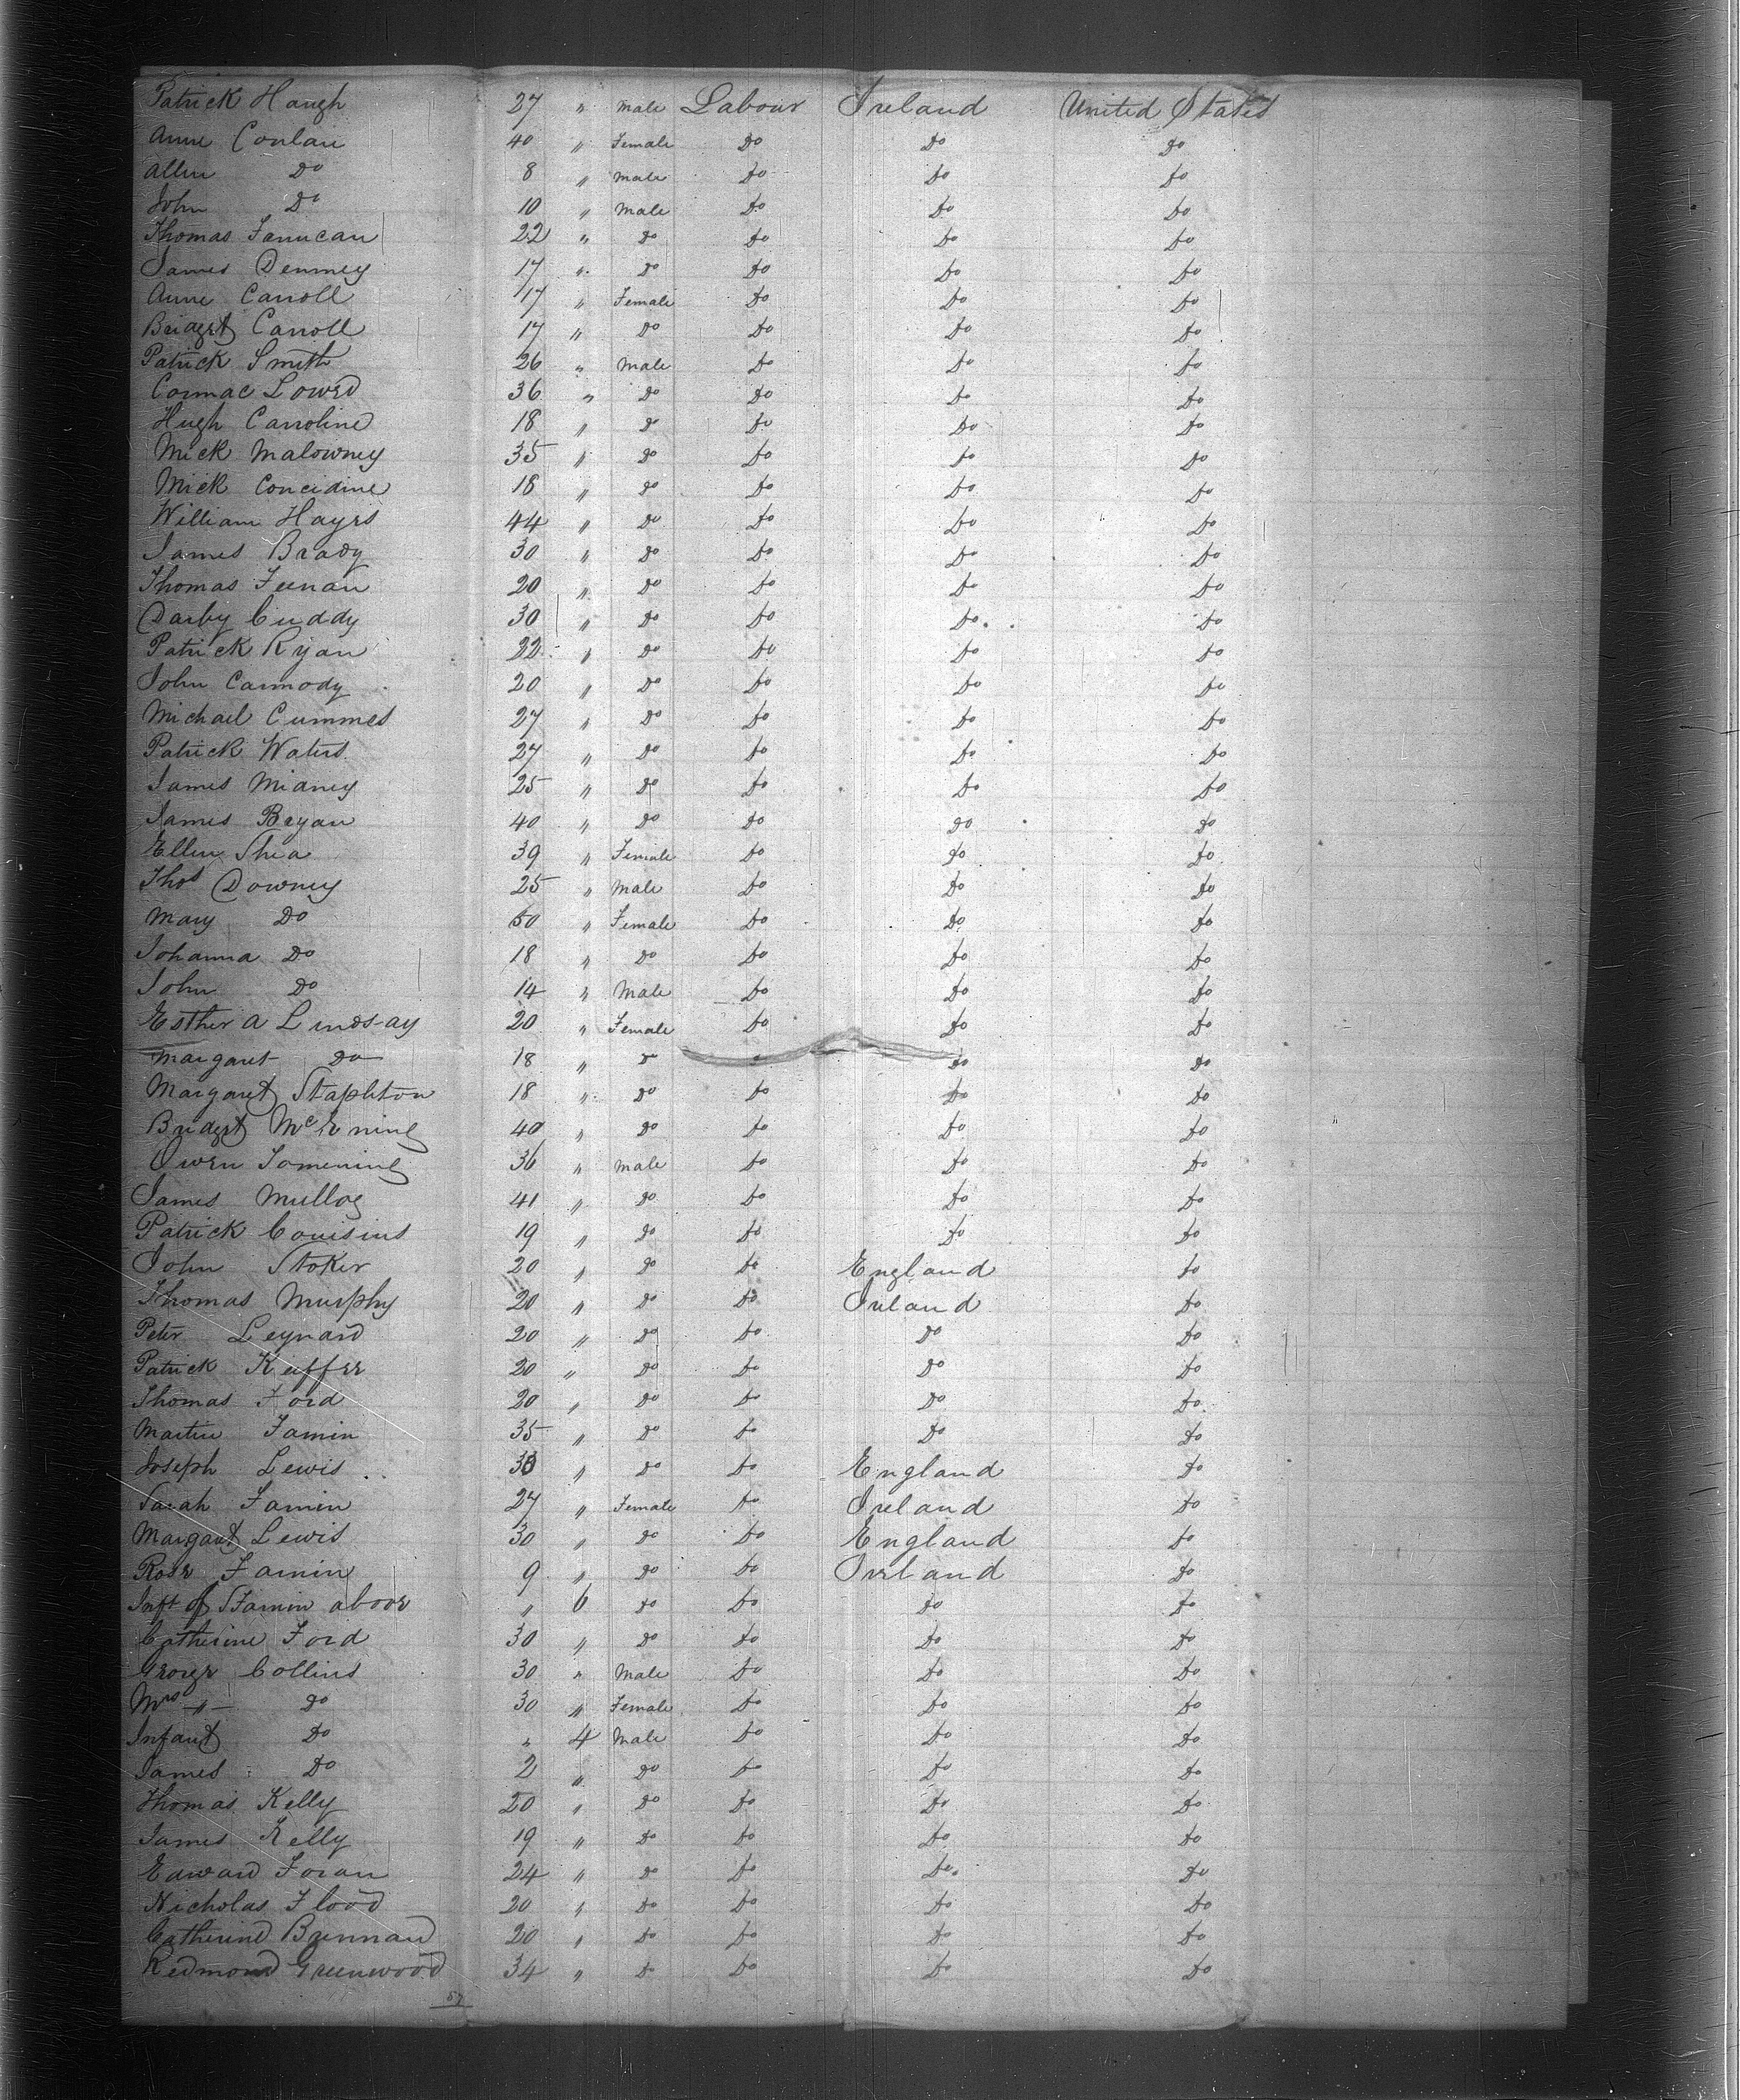 Patrick Haugh 27 " Male Labour Ireland United States
Anne Conlan 40 " Female Do Do Do
Allen Do 8 " Male Do Do Do
John Do 10 " Male Do Do Do
Thomas Fanucan 22 " Do Do Do Do
James Denmey 17 " Do Do Do Do
Anne Carroll 17 " Female Do Do Do
Bridget Carroll 17 " Do Do Do Do
Patrick Smith 26 " Male Do Do Do
Cormac Lowrd 36 " Do Do Do Do
Hugh Carroline 18 " Do Do Do Do
Mick Malowney 35 " Do Do Do Do
Mick Concidine 18 " Do Do Do Do
William Hayes 44 " Do Do Do Do
James Brady 30 " Do Do Do Do
Thomas Feenan 20 " Do Do Do Do
Darby Cuddy 30 " Do Do Do Do
Patrick Ryan 22 " Do Do Do Do
John Carmody 20 " Do Do Do Do
Michael Cummes 27 " Do Do Do Do
Patrick Waters 27 " Do Do Do Do
James 25 " Do Do Do Do
James Bryan 40 " Do Do Do Do
Ellen Shea 39 " Female Do Do Do
Thos Downey 25 " Male Do Do Do
Mary Do 50 " Female Do Do Do
Johanna Do 18 " Do Do Do Do
John Do 14 " Male Do Do Do
Esther A Lindsay 20 " Female Do Do Do
Margaret Do 18 " Do Do Do
Margaret Stapleton 18 " Do Do Do Do
Bridget 40 " Do Do Do Do
Owen 36 " Male Do Do Do
James Mulloy 41 " Do Do Do Do
Patrick Couisins 19 " Do Do Do Do
John Stoker 20 " Do Do England Do
Thomas Murphy 20 " Do Do Ireland Do
Peter Leynard 20 " Do Do Do Do
Patrick Keiffer 20 " Do Do Do Do
Thomas Ford 20 " Do Do Do Do
Martin Famin 35 " Do Do Do Do
Joseph Lewis 33 " Do Do England Do
Sarah Famin 27 " Female Do Ireland Do
Margaret Lewis 30 " Do Do England Do
Rose Famin 9 " Do Do Ireland Do
Inft of S Famin above " 6 Do Do Do Do
Catherine Ford 30 " Do Do Do Do
George Collins 30 " Male Do Do Do
Mrs " Do 30 " Female Do Do Do
Infant Do " 4 Male Do Do Do
James Do 2 " Do Do Do Do
Thomas Kelly 20 " Do Do Do Do
James Kelly 19 " Do Do Do Do
Edward Foran 24 " Do Do Do Do
Nicholas Flood 20 " Do Do Do Do
Catherine Brennan 20 " Do Do Do Do
Redmond Greenwood 34 " Do Do Do Do
57